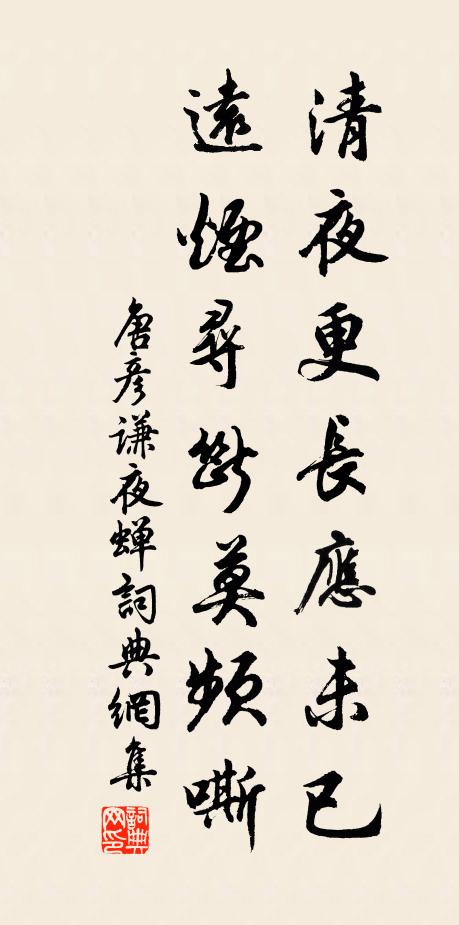 清夜更長應未已
遠煙尋斷莫頻嘶
唐彥谦夜蝉詞典網集
詞典
网印